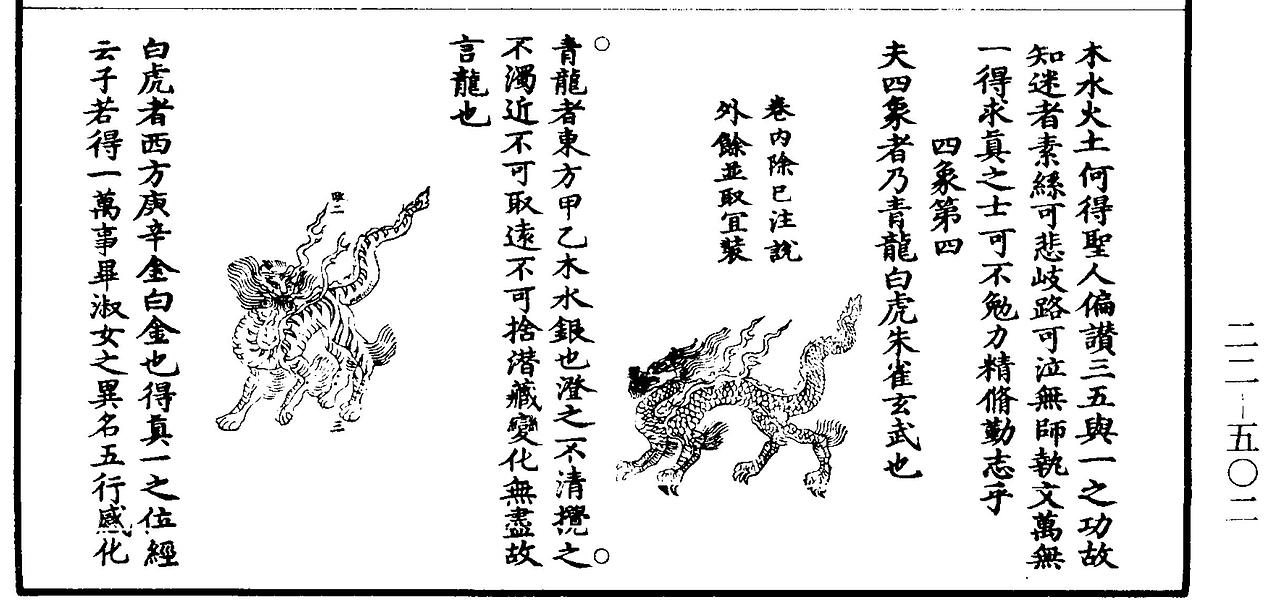 木水火土何得聖人偏讃三五與一之功故
知迷者素絲可悲岐路可泣無師執文萬無
一得求真之士可不勉力精脩勤志乎
四象第四
夫四象者乃青龍白虎朱雀玄武也
卷內除已注說
外餘並取宜裝
青龍者東方甲乙木水銀也澄之不清攪之
不濁近不可取遠不可捨潛藏變化無盡故
言龍也
二
三
白虎者西方庚辛金白金也得真一之位經
云子若得一萬事畢淑女之異名五行感化
二二-五〇二